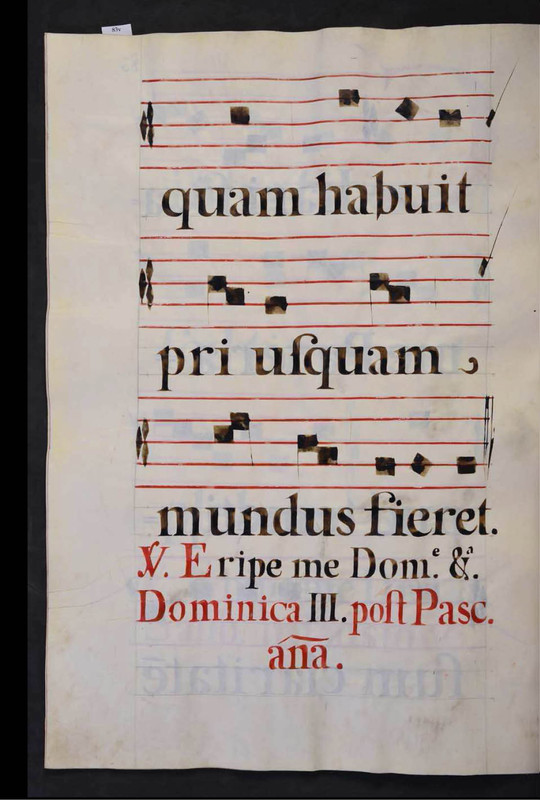 83v
quam habuit
pri uſquam
mundus fieret.
℣. Eripe me Dom.ᵉ &.ᵃ
Dominica III. poſt Pasc.
an̄a.